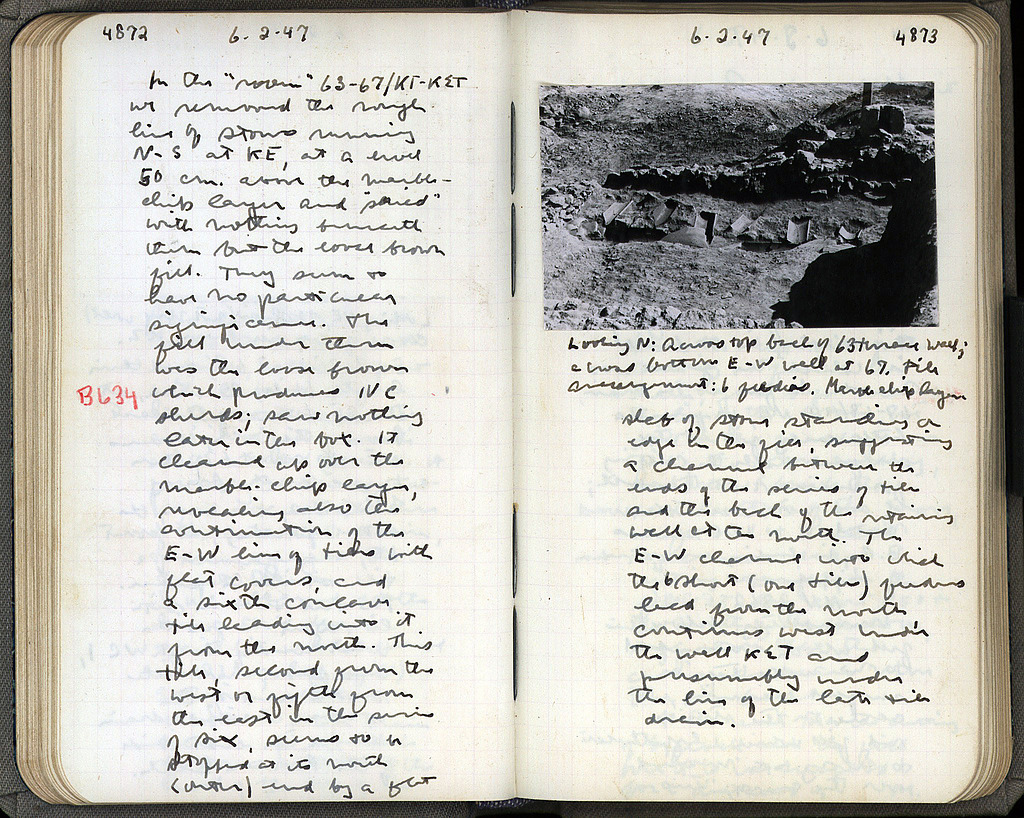 4872 6-2-47
In the "room" 63-67/KT-KET
we removed the rough
line of stones running
N-S at KE, at a level
50 cm. above the marble-
chip layer and
with nothing beneath
them but the loose brown
fill. They seem to
have no particular
significance. The
fill under them
was the loose brown
B634 which produced IV C
sherds; saw nothing
later in the box. It
cleaned up over the
marble-chip layer,
revealing also the
continuation of the
E-W line of tiles with
flat covers, and
a sixth concave
tile leading into it
from the north. This
tile, second from the
west or fifth from
the east in the series
of six, seems to be
stopped at its north
(outer) end by a flat
6-2-47 4873
Looking N: Across top back of 63 terrace wall;
across bottom E-W wall at 67. Tile
arrangement: 6 feeders. Marble chip layer
slab of stone standing on
edge in the fill, suggesting
a channel between the
ends of the series of tiles
and the back of the retaining
wall at the north. The
E-W channel into which
the 6 short (one tile) feeders
lead from the north
continues west under
the wall KET and
presumably under
the line of the late tile
drain.